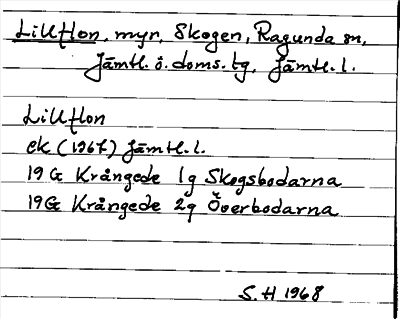 Lillflon, myr, Skogen, Ragunda sn,
Jämtl. ö. doms. tg, Jämtl. l.
Lillflon
ek (1967) Jämtl. l.
19 G Krångede 1g Skogsbodarna
19G Krångede 2g Överbodarna
S.H 1968